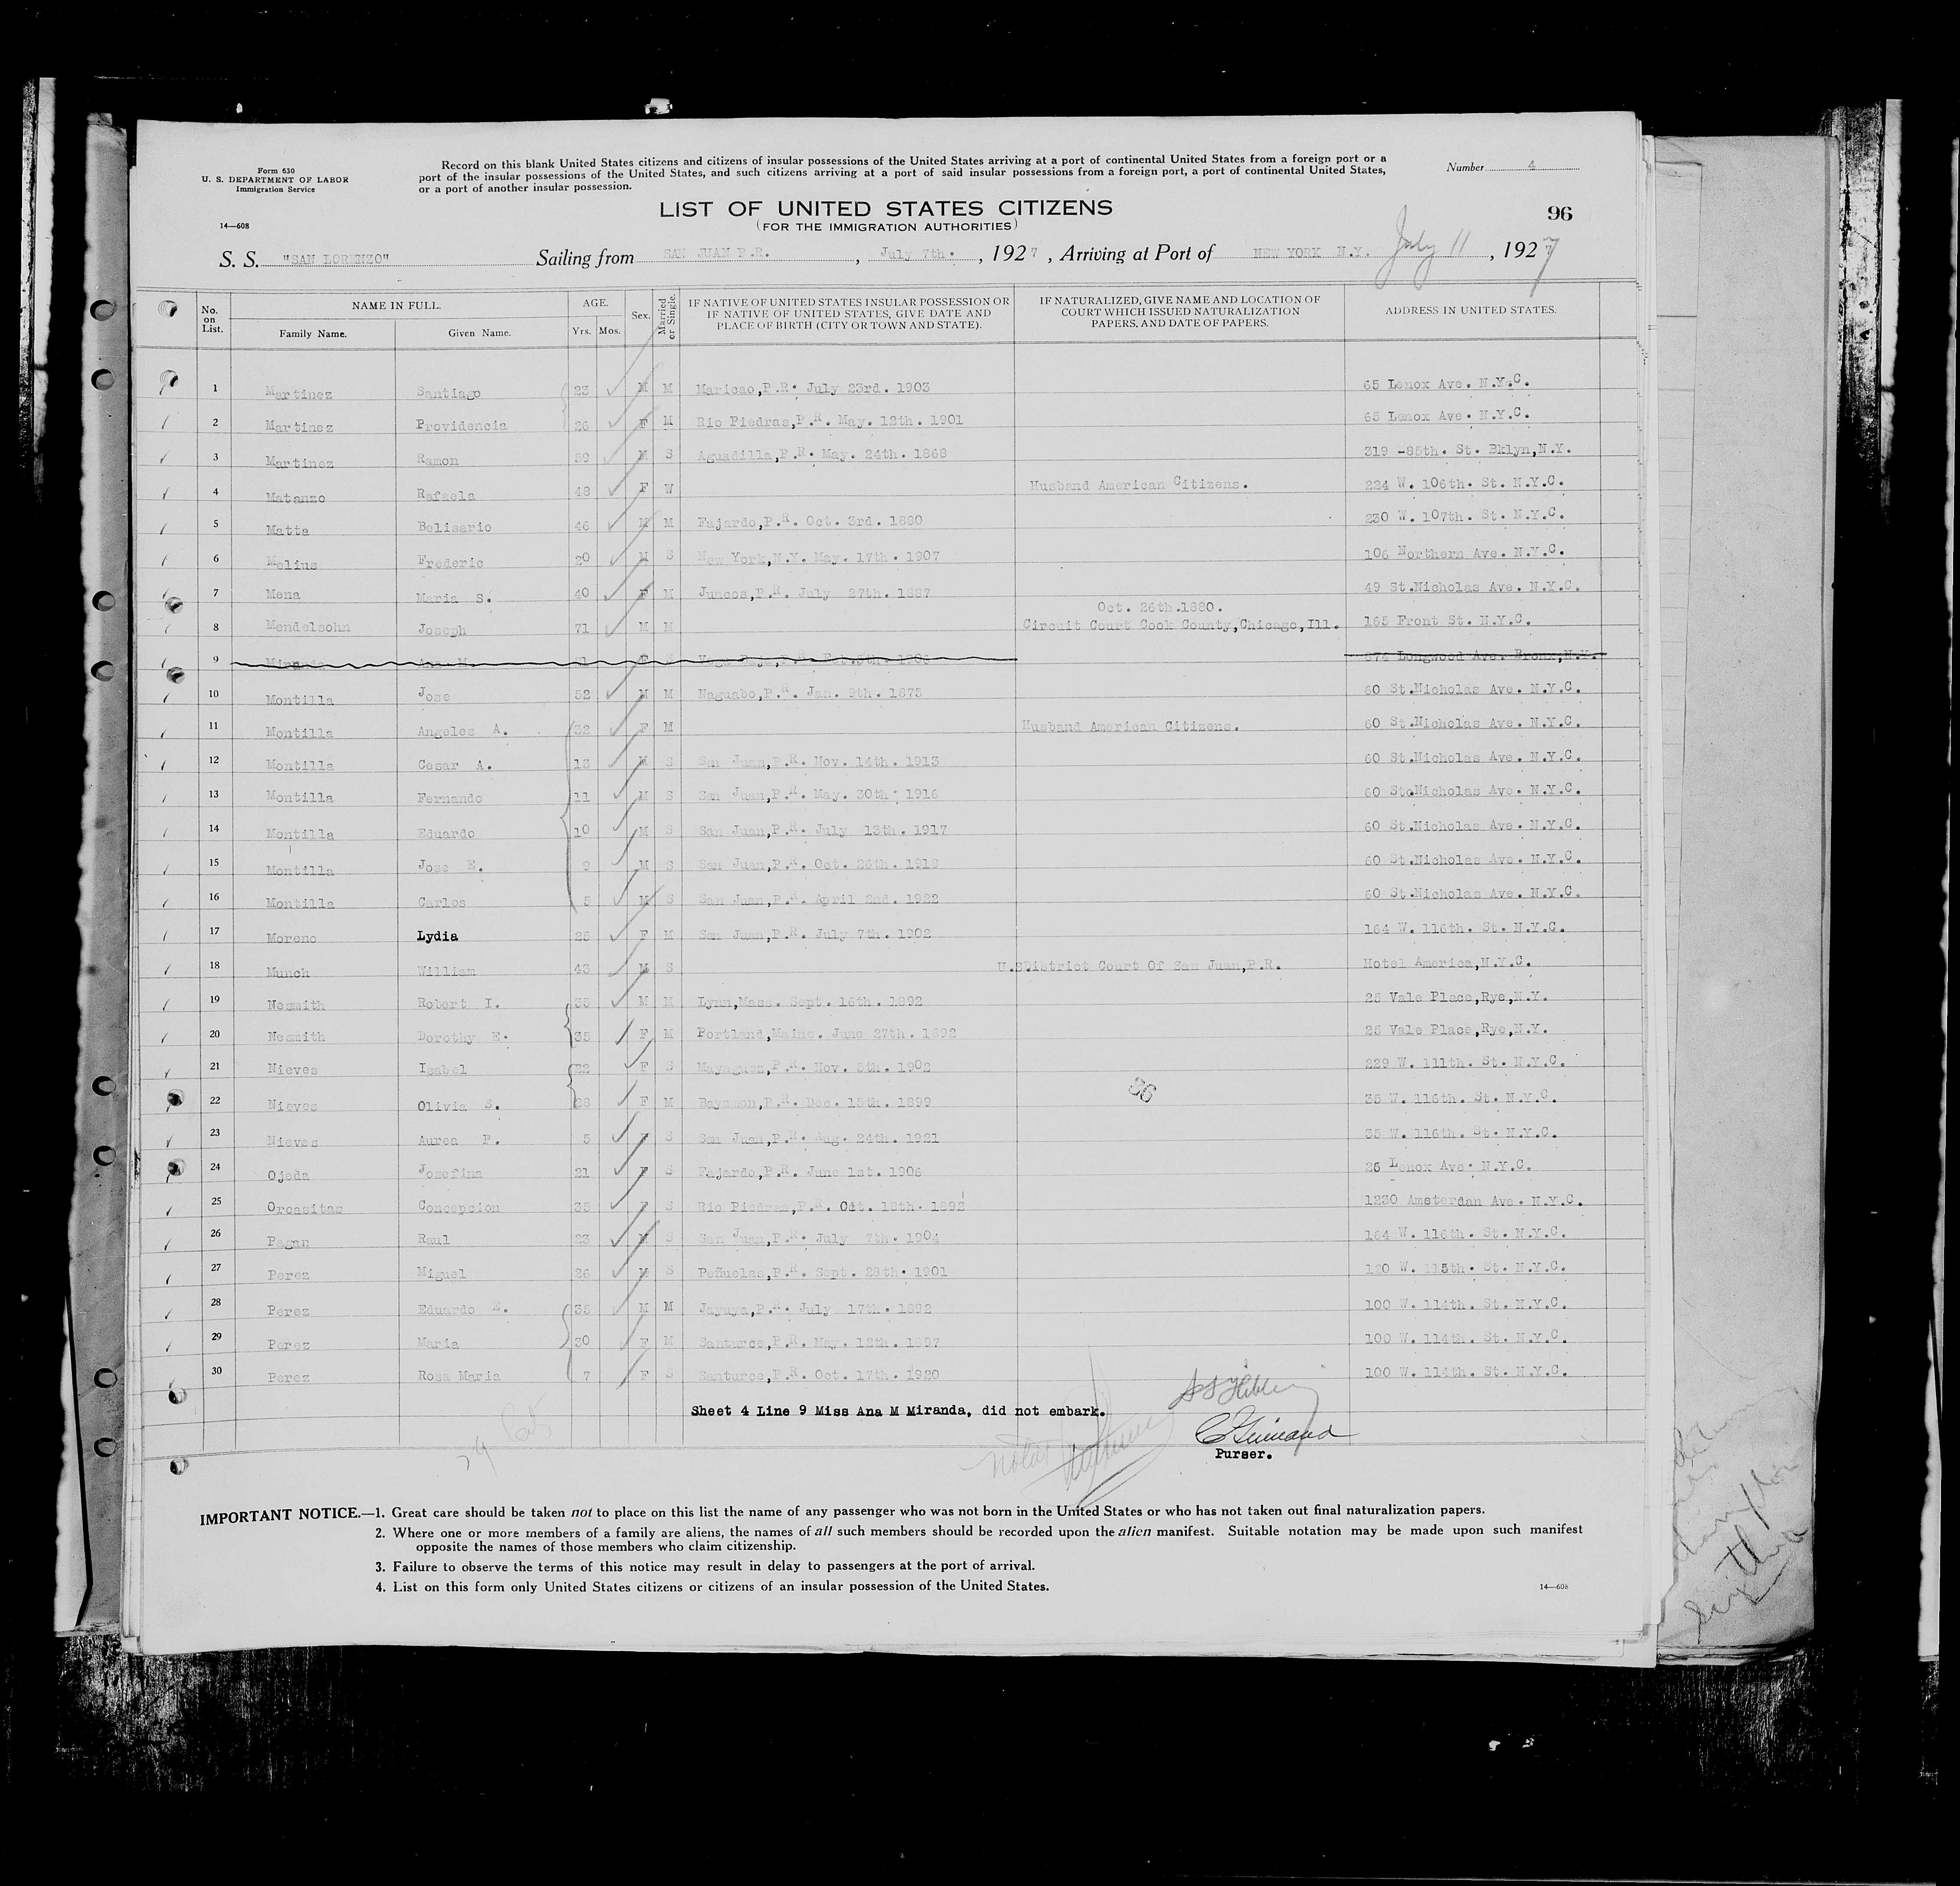 Form 630
U. S. DEPARTMENT OF LABOR
Immigration Service
14—608
Record on this blank United States citizens and citizens of insular possessions of the United States arriving at a port of continental United States from a foreign port or a
port of the insular possessions of the United States, and such citizens arriving at a port of said insular possessions from a foreign port, a port of continental United States,
or a port of another insular possession.
Number 4
96
LIST OF UNITED STATES CITIZENS
(FOR THE IMMIGRATION AUTHORITIES)
S. S. "SAN LORENZO" Sailing from SAN JUAN P.R. , July 7th. , 1927 , Arriving at Port of NEW YORK N.Y. July 11 , 1927
No. on List. NAME IN FULL. Family Name. Given Name. AGE. Yrs. Mos. Sex. Married or Single. IF NATIVE OF UNITED STATES INSULAR POSSESSION OR IF NATIVE OF UNITED STATES, GIVE DATE AND PLACE OF BIRTH (CITY OR TOWN AND STATE). IF NATURALIZED, GIVE NAME AND LOCATION OF COURT WHICH ISSUED NATURALIZATION PAPERS, AND DATE OF PAPERS. ADDRESS IN UNITED STATES.
1 Martinez Santiago 23 M M Maricao,P.R. July 23rd. 1903 65 Lenox Ave. N.Y.C.
2 Martinez Providencia 26 F M Rio Piedras,P.R. May. 12th. 1901 65 Lenox Ave. N.Y.C.
3 Martinez Ramon 59 M S Aguadilla,P.R. May. 24th. 1868 319 -85th. St. Bklyn,N.Y.
4 Matanzo Rafaela 48 F W Husband American Citizens. 224 W. 106th. St. N.Y.C.
5 Matta Belisario 46 M M Fajardo,P.R. Oct. 3rd. 1880 230 W. 107th. St. N.Y.C.
6 Melius Frederic 20 M S New York,N.Y. May. 17th. 1907 106 Northern Ave. N.Y.C.
7 Mena Maria S. 40 F M Juncos,P.R. July 27th. 1887 49 St.Nicholas Ave. N.Y.C.
Oct. 26th.1880.
8 Mendelsohn Joseph 71 M M Circuit Court Cook County,Chicago,Ill. 165 Front St. N.Y.C.
9 Miranda Ana M. F S Vega Baja,P.R. Feb.5th. Longwood Ave. Bronx,N.Y.
10 Montilla Jose 52 M M Naguabo,P.R. Jan. 9th. 1875 60 St.Nicholas Ave. N.Y.C.
11 Montilla Angeles A. 32 F M Husband American Citizens. 60 St.Nicholas Ave. N.Y.C.
12 Montilla Cesar A. 13 M S San Juan,P.R. Nov. 14th. 1913 60 St.Nicholas Ave. N.Y.C.
13 Montilla Fernando 11 M S San Juan,P.R. May. 30th. 1916 60 StoNicholas Ave. N.Y.C.
14 Montilla Eduardo 10 M S San Juan,P.R. July 13th. 1917 60 St.Nicholas Ave. N.Y.C.
15 Montilla Jose E. 9 M S San Juan,P.R. Oct. 26th. 1918 60 St.Nicholas Ave. N.Y.C.
16 Montilla Carlos 5 M S San Juan,P.R. April 2nd. 1922 60 St.Nicholas Ave. N.Y.C.
17 Moreno Lydia 25 F M San Juan,P.R. July 7th. 1902 164 W. 116th. St. N.Y.C.
18 Munch William 43 M S U.SDistrict Court Of San Juan,P.R. Hotel America,N.Y.C.
19 Nesmith Robert I. 35 M M Lynn,Mass. Sept. 16th. 1892 25 Vale Place,Rye,N.Y.
20 Nesmith Dorothy E. 35 F M Portland,Maine. June 27th. 1892 25 Vale Place,Rye,N.Y.
21 Nieves Isabel 22 F S Mayaguez,P.R. Nov. 5th. 1902 229 W. 111th. St. N.Y.C.
22 Nieves Olivia S. 28 F M Bayamon,P.R. Dec. 15th. 1899 35 W. 116th. St. N.Y.C.
23 Nieves Aurea P. 5 F S San Juan,P.R. Aug. 24th. 1921 35 W. 116th. St. N.Y.C.
24 Ojeda Josefina 21 F S Fajardo,P.R. June 1st. 1906 26 Lenox Ave. N.Y.C.
25 Orcasitas Concepcion 35 F S Rio Piedras,P.R. Oct. 18th. 1892 1230 Amsterdan Ave. N.Y.C.
26 Pagan Raul 23 M S San Juan,P.R. July 7th. 1904 164 W. 116th. St. N.Y.C.
27 Perez Miguel 26 M S Peñuelas,P.R. Sept. 28th. 1901 120 W. 115th. St. N.Y.C.
28 Perez Eduardo E. 35 M M Jayuya,P.R. July 17th. 1892 100 W. 114th. St. N.Y.C.
29 Perez Maria 30 F M Santurce,P.R. May. 12th. 1897 100 W. 114th. St. N.Y.C.
30 Perez Rosa Maria 7 F S Santurce,P.R. Oct. 17th. 1920 100 W. 114th. St. N.Y.C.
Sheet 4 Line 9 Miss Ana M Miranda, did not embark.
Purser.
IMPORTANT NOTICE.—1. Great care should be taken not to place on this list the name of any passenger who was not born in the United States or who has not taken out final naturalization papers.
2. Where one or more members of a family are aliens, the names of all such members should be recorded upon the alien manifest. Suitable notation may be made upon such manifest
opposite the names of those members who claim citizenship.
3. Failure to observe the terms of this notice may result in delay to passengers at the port of arrival.
4. List on this form only United States citizens or citizens of an insular possession of the United States.
14—608